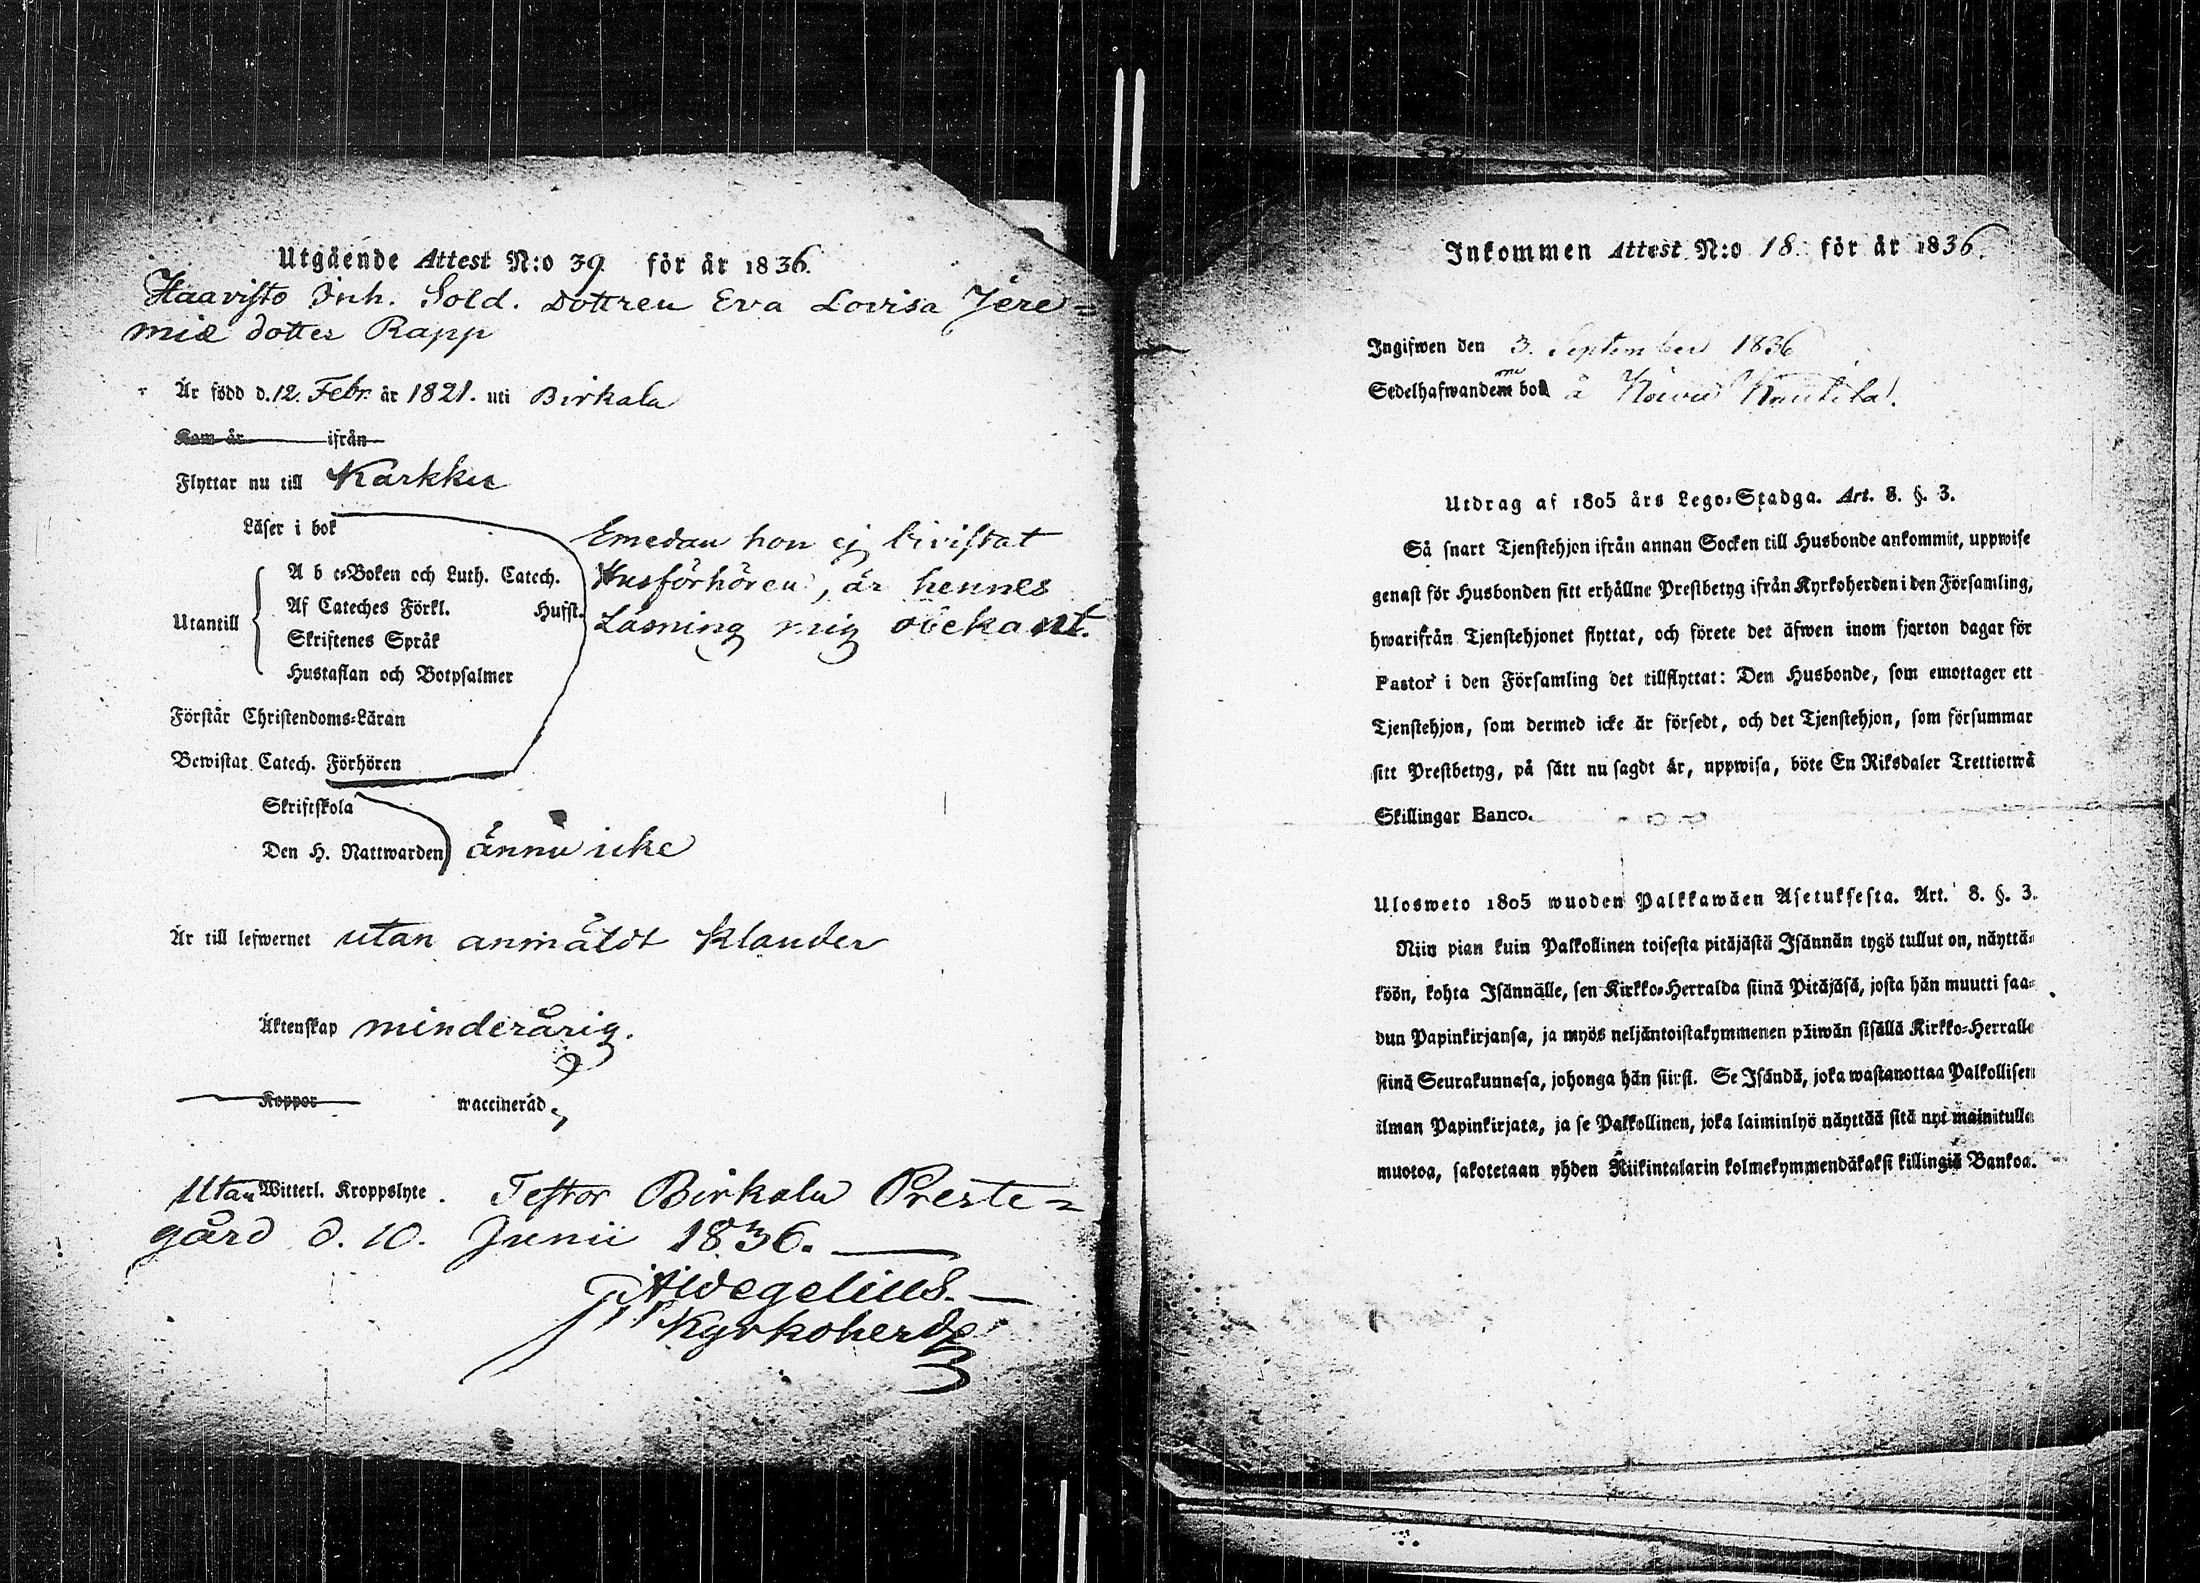 Utgående Attest N:o 39 för år 1836.
Haavisto Inh. Sold. Dottren Eva Lovisa Jere=
miæ dotter Rapp
Är född d. 12. Febr. år 1821. uti Birkala
Kom år ifrån
Flyttar nu till Karkku
Läser i bok
Emedan hon ej bivistat
A b c=Boken och Luth. Catech.
Husförhören, är hennes
Af Cateches Förkl. Hufst.
Utantill
Läsning mig obekant.
Skriftenes Språk
Hustaflan och Botpsalmer
Förstår Christendoms=Läran
Bewistat Catech. Förhören
Skriftskola
Den H. Nattwarden ännu icke
Är till lefwernet utan anmäldt klander
Äktenskap minderårig.
Koppor waccineråd
Utan Witterl. Kroppslyte. Testor Birkala Preste=
gård d. 10. Junii 1836.
Aldegelius.
Kyrkoherde
Inkommen Attest N:o 18. för år 1836.
Ingifwen den 3. September 1836
Sedelhafwanden bor å
Utdrag af 1805 års Lego=Stadga. Art. 8. §. 3.
Så snart Tjenstehjon ifrån annan Socken till Husbonde ankommit, uppwise
genast för Husbonden sitt erhållne Prestbetyg ifrån Kyrkoherden i den Församling,
hwarifrån Tjenstehjonet flyttat, och förete det äfwen inom fjorton dagar för
Pastor i den Församling det tillflyttat: Den Husbonde, som emottager ett
Tjenstehjon, som dermed icke är försedt, och det Tjenstehjon, som försummar
sitt Prestbetyg, på sätt nu sagdt är, uppwisa, böte En Riksdaler Trettiotwå
Skillingar Banco.
Ulosweto 1805 wuoden Palkkawäen Asetuksesta. Art. 8. §. 3.
Niin pian kuin Palkollinen toisesta pitäjästä Isännän tygö tullut on, näyttä=
köön, kohta Isännälle, sen Kirkko=Herralda siinä Pitäjäsä, josta hän muutti saa=
dun Papinkirjansa, ja myös neljäntoistakymmenen päiwän sisällä Kirkko=Herralle
siinä Seurakunnasa, johonga hän siirsi. Se Isändä, joka wastanottaa Palkollisen
ilman Papinkirjata, ja se Palkollinen, joka laiminlyö näyttää sitä nyt mainitulla
muotoa, sakotetaan yhden Riikintalarin kolmekymmendäkaksi killingiä Bankoa.